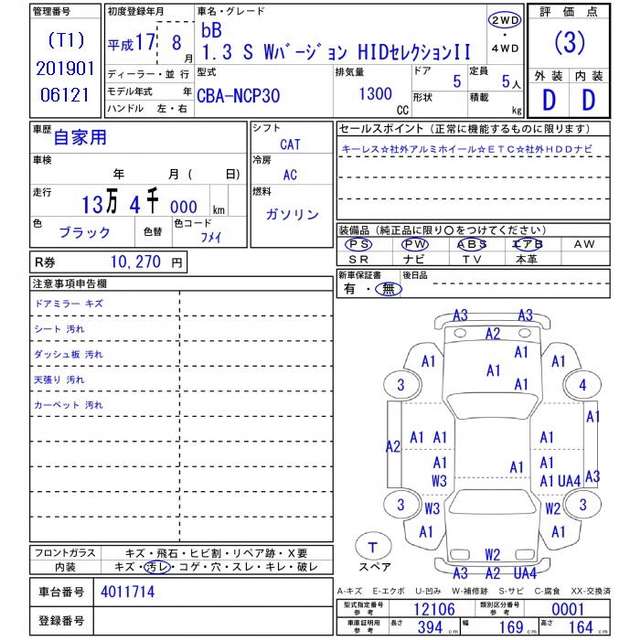 管理番号
(T1)
201901
06121
初度登録年月
平成17 8月
ディーラー・並行
モデル年式 年
ハンドル 左・右
車名・グレード
bB
1.3 S Wバージョン HIDセレクションII
2WD
・
4WD
型式
CBA-NCP30
排気量
1300
CC
ドア
5
定員
5人
形状
積載
kg
評価点
(3)
外装 内装
D D
車歴
自家用
車検
年 月( 日)
走行
13万4千000km
色
ブラック
色替
色コード
フメイ
シフト
CAT
冷房
AC
燃料
ガソリン
セールスポイント(正常に機能するものに限ります)
キーレス☆社外アルミホイール☆ETC☆社外HDDナビ
装備品(純正品に限り〇をつけてください)
PS PW ABS エアB AW
SR ナビ TV 本革
R券 10,270円
新車保証書
有・無
後日品
注意事項申告欄
ドアミラー キズ
シート 汚れ
ダッシュ板 汚れ
天張り 汚れ
カーペット 汚れ
A3 A3
A2
A1 A1 A1
A1
A1
3 4
A1
A2 A1 A1 A1
A1 A1
W3 A1 UA4 A3
3 W3 W2 3
A1 A1
W2
A3 A2 UA4
T
スペア
フロントガラス キズ・飛石・ヒビ割・リペア跡・X要
内装 キズ・汚レ・コゲ・穴・スレ・キレ・破レ
A-キズ E-エクボ U-凹み W-補修跡 S-サビ C-腐食 XX-交換済
車台番号 4011714
登録番号
型式指定番号 参考 12106
類別区分番号 参考 0001
車庫証明用 参考 長さ 394 cm 幅 169 cm 高さ 164 cm